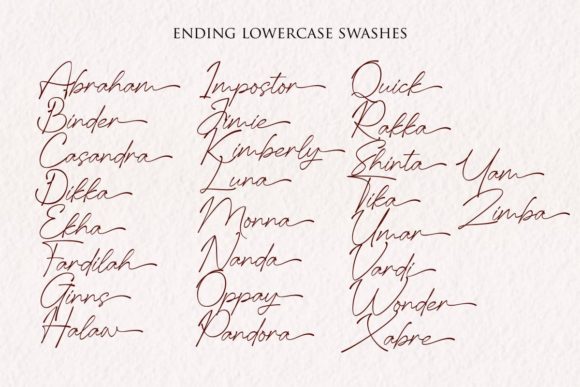 ENDING LOWERCASE SWASHES
Abraham
Binder
Casandra
Dikka
Ekha
Fardilah
Ginns
Halaw
Impostor
Jimie
Kimberly
Luna
Monna
Nanda
Oppay
Pandora
Quick
Rakka
Shinta
Tika
Umar
Vardi
Wonder
Xabre
Yam
Zimba